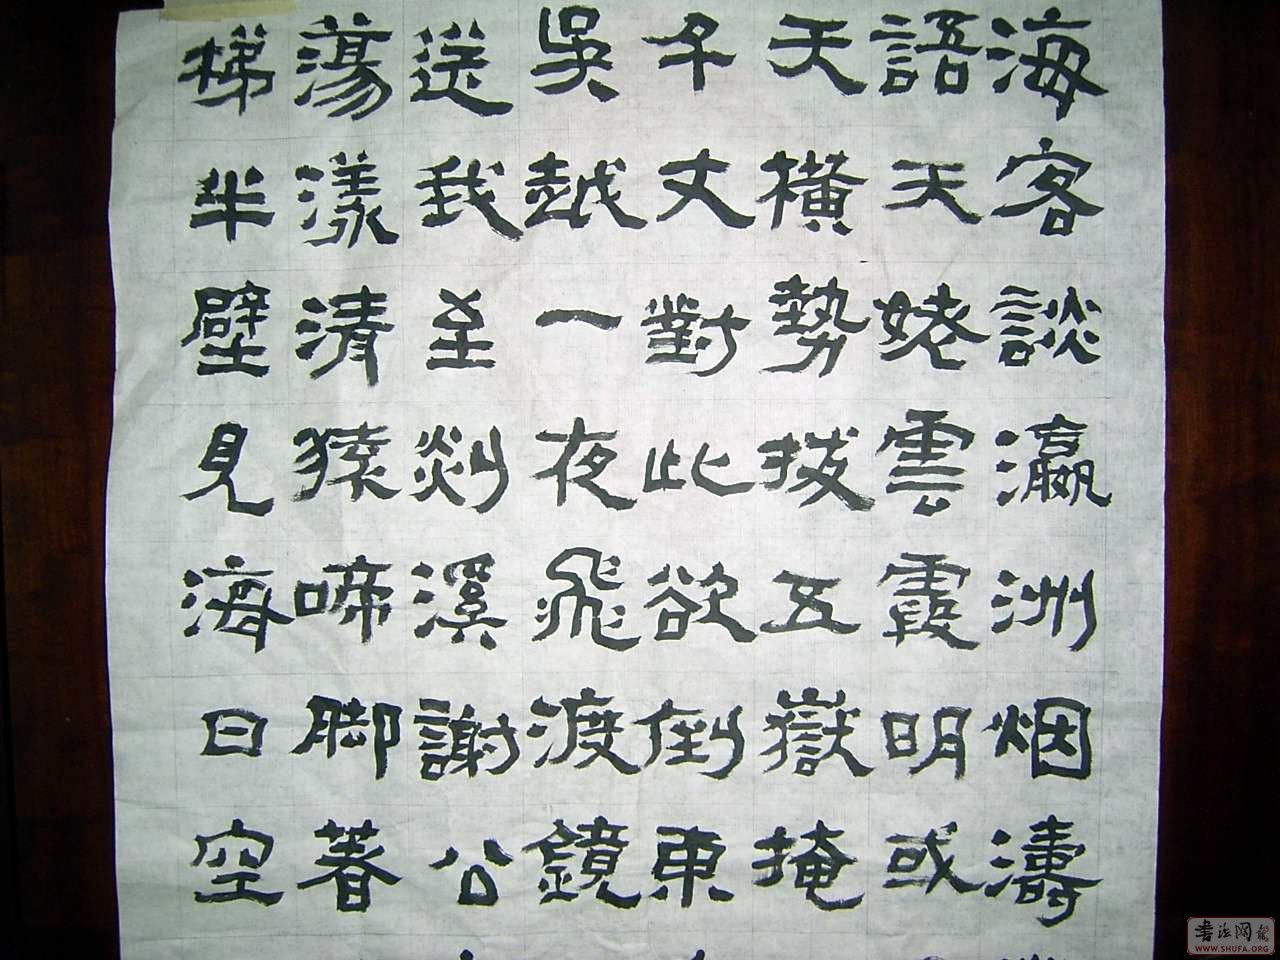 海客談瀛洲烟濤
語天姥雲霞明或
天橫勢拔五嶽掩
千丈對此欲倒東
吳越一夜飛渡鏡
送我至剡溪謝公
蕩漾清猿啼脚着
梯半壁見海日空
書法网
WWW.SHUFA.ORG